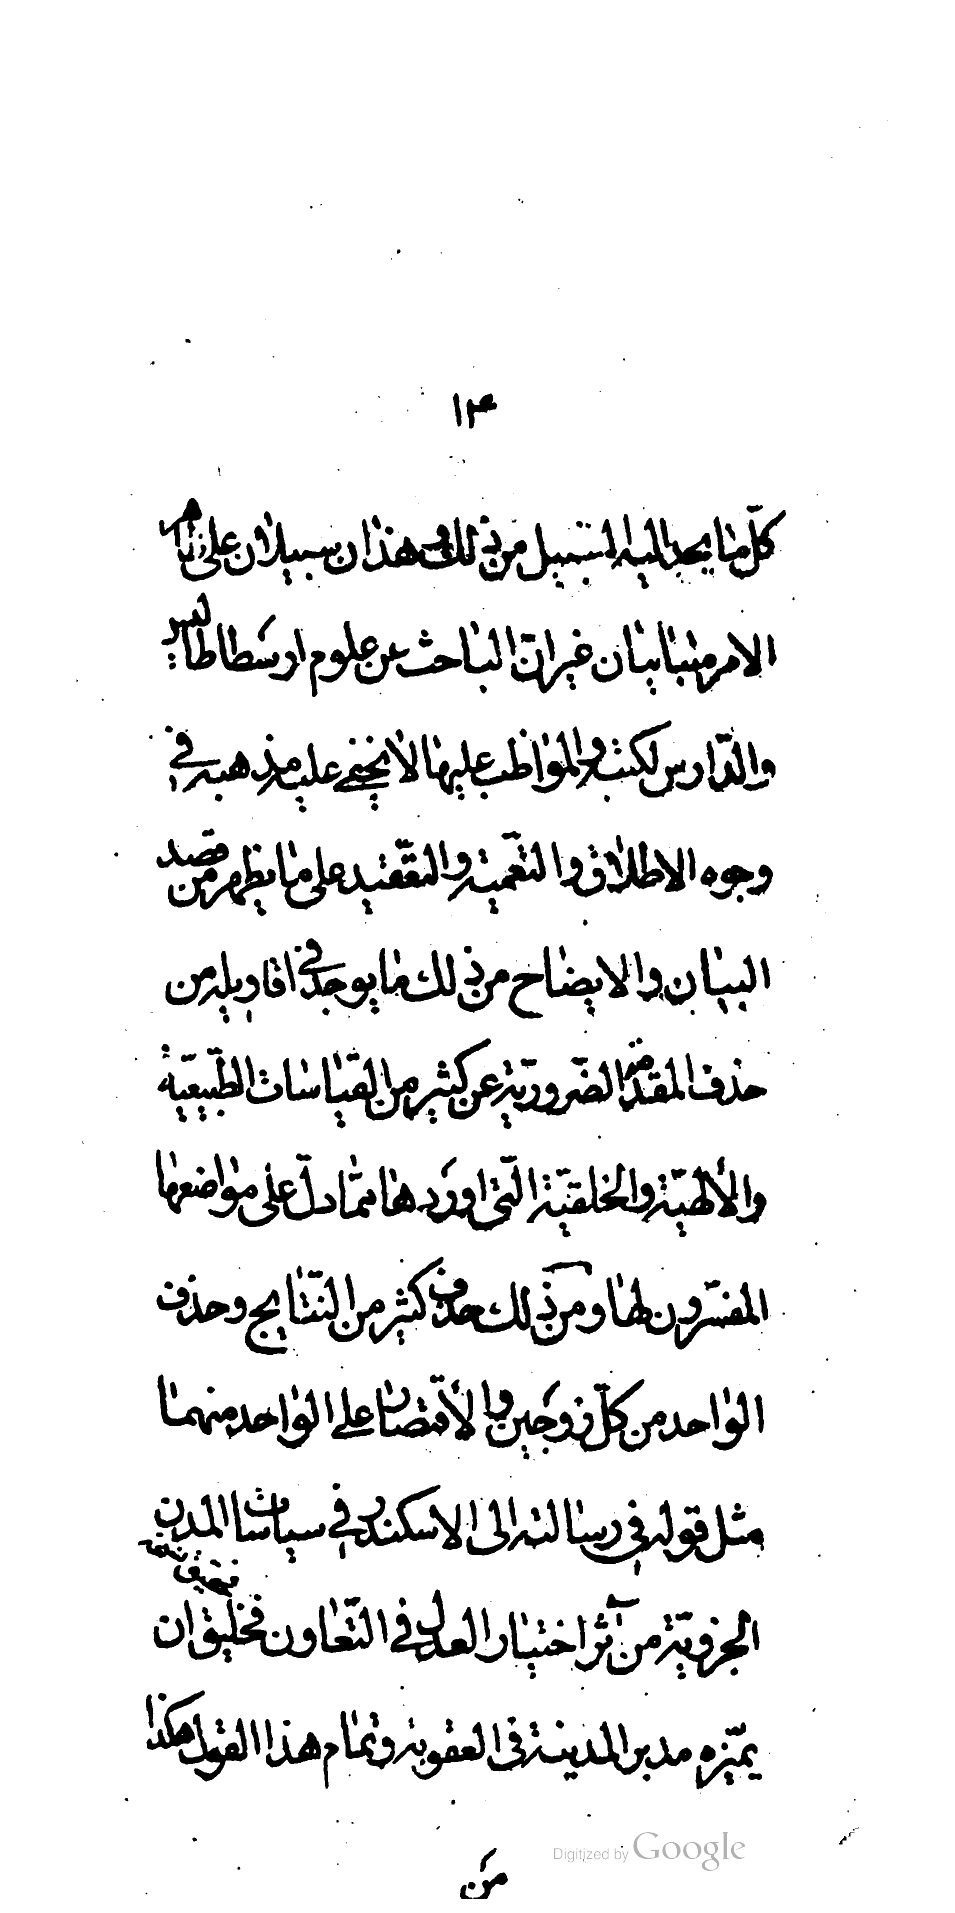 ١٣
كلّ ما يجد اليه السبيل من ذلك وهذان سبيلان على ظاهر
الامر متباينان غير انّ الباحث عن علوم ارسطاطاليس
والدّارس لكتبه والمواظب عليها لا يخفى عليه مذهبه في
وجوه الاطلاق والتعمية والتعّقيد على ما يظهر من قصد
البيان والايضاح من ذلك ما يوجد في اقاويله من
حذف المقدمّة الضّروريّة عن كثير من القياسات الطّبيعيّة
والألهيّة والخلقيّة الّتى اوردها ممّا دلّ على مواضعها
المفسّرون لها ومن ذلك حذف كثير من النتّايج وحذف
الواحد من كلّ زوجين والأقتصار على الواحد منهما
مثل قوله في رسالته الى الاسكندر في سياسات المدن
الجزويّة من آثر اختيار العدل في التّعاون فخليق ان
يميّزه مدبر المدينة في العقوبة وتمام هذا القول هكذا
من
Digitized by Google